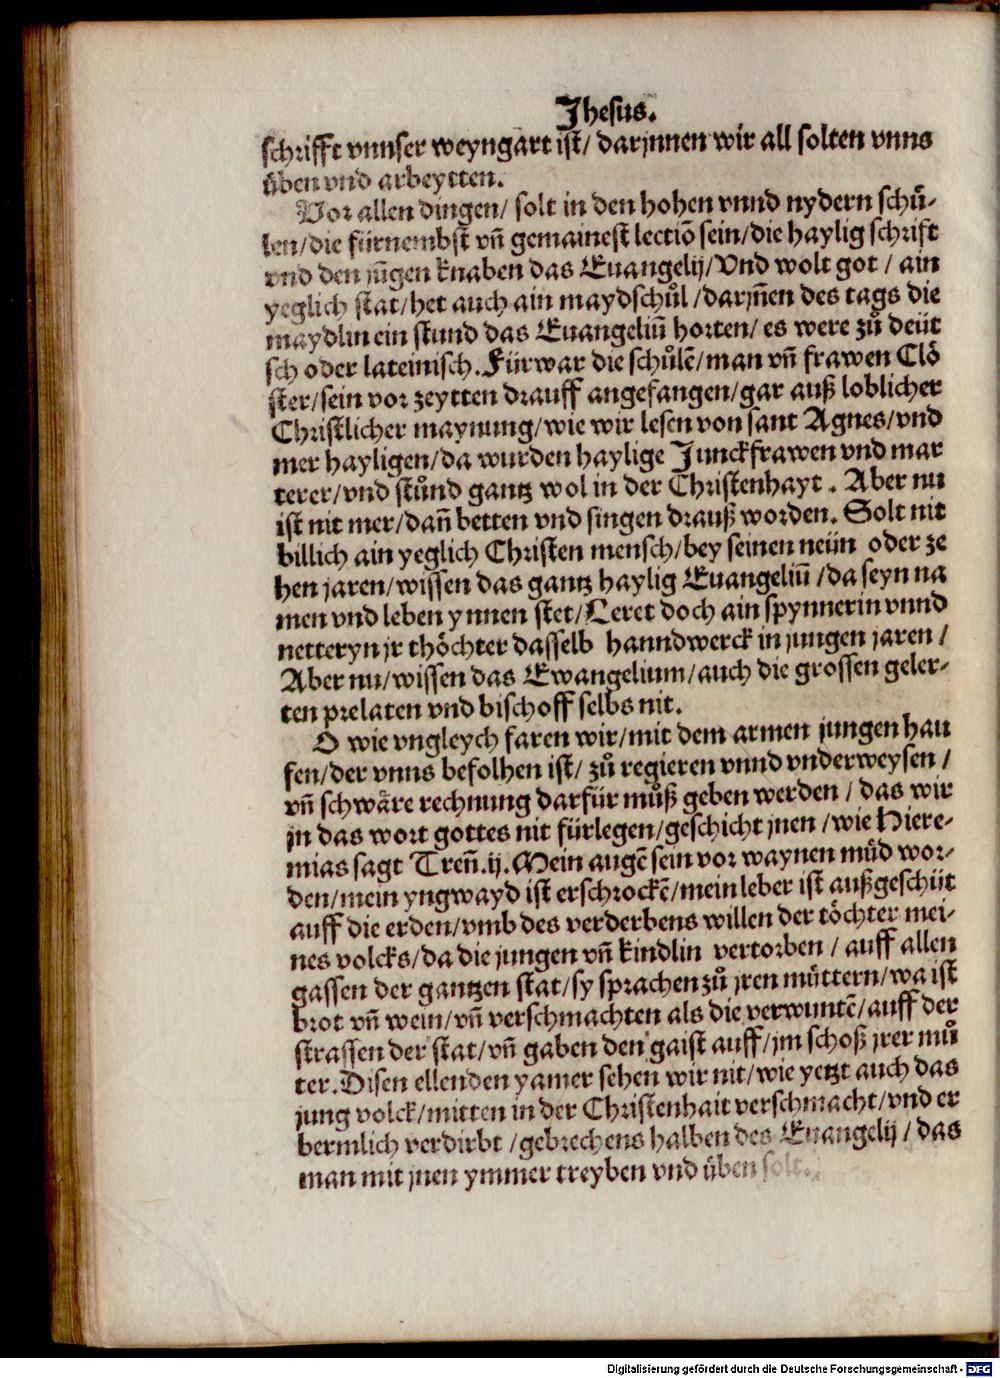 Jhesus.
schrifft vnnser weyngart ist/ darjnnen wir all solten vnns
üben vnd arbeytten.
Vor allen dingen/ solt in den hohen vnnd nydern schů-
len/die fürnembst vñ gemainest lectiō sein/die haylig schrift
vnd den jūgen knaben das Euangelij/Vnd wolt got / ain
yeglich stat/het auch ain maydschůl/darjñen des tags die
maydlin ein stund das Euangeliū horten/ es were zů deüt
sch oder lateinisch. Fürwar die schůlē/man vñ frawen Clö
ster/sein vor zeytten drauff angefangen/gar auß loblicher
Christlicher maynung/wie wir lesen von sant Agnes/vnd
mer hayligen/da wurden haylige Junckfrawen vnd mar
terer/vnd stůnd gantz wol in der Christenhayt. Aber nu
ist nit mer/dañ betten vnd singen drauß worden. Solt nit
billich ain yeglich Christen mensch/bey seinen neün oder ze
hen jaren/wissen das gantz haylig Euangeliū/da seyn na
men vnd leben ynnen stet/Leret doch ain spynnerin vnnd
netteryn jr thöchter dasselb hanndwerck in jungen jaren /
Aber nu/wissen das Ewangelium/auch die grossen geler-
ten prelaten vnd bischoff selbs nit.
O wie vngleych faren wir/mit dem armen jungen hau
fen/der vnns befolhen ist/ zů regieren vnnd vnderweysen /
vñ schwäre rechnung darfür můß geben werden / das wir
jn das wort gottes nit fürlegen/geschicht jnen /wie Hiere-
mias sagt Treñ.ij. Mein augē sein vor waynen müd wor-
den/mein yngwayd ist erschrockē/mein leber ist außgeschüt
auff die erden/vmb des verderbens willen der töchter mei-
nes volcks/da die jungen vñ kindlin vertorben / auff allen
gassen der gantzen stat/sy sprachen zů jren müttern/wa ist
brot vñ wein/vñ verschmachten als die verwuntē/auff der
strassen der stat/vñ gaben den gaist auff/jm schoß jrer mů
ter. Disen ellenden yamer sehen wir nit/wie yetzt auch das
jung volck/mitten in der Christenhait verschmacht/vnd er
bermlich verdirbt /gebrechens halben des Euangelij / das
man mit jnen ymmer treyben vnd üben solt.
Digitalisierung gefördert durch die Deutsche Forschungsgemeinschaft - DFG